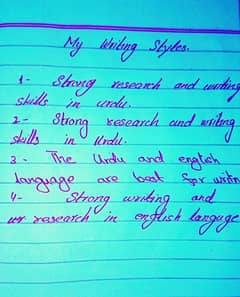 My Writing Styles.
1- Strong research and writing
skills in urdu.
2- Strong research and writing
skills in Urdu.
3- The Urdu and english
language are best for writin
4- Strong writing and
research in english languge